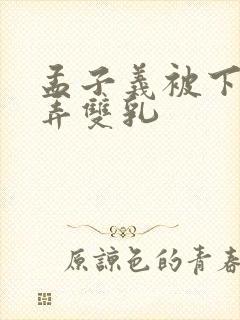 孟子義被下
弄雙乳
原諒色的青春